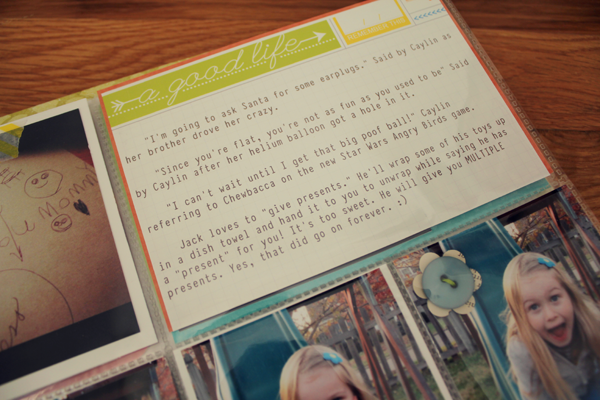 a good life
REMEMBER THIS
"I'm going to ask Santa for some earplugs." Said by Caylin as
her brother drove her crazy.
"Since you're flat, you're not as fun as you used to be" Said
by Caylin after her helium balloon got a hole in it.
"I can't wait until I get that big poof ball" Caylin
referring to Chewbacca on the new Star Wars Angry Birds game.
Jack loves to "give presents." He'll wrap some of his toys up
in a dish towel and hand it to you to unwrap while saying he has
a "present" for you! It's too sweet. He will give you MULTIPLE
presents. Yes, that did go on forever. :)